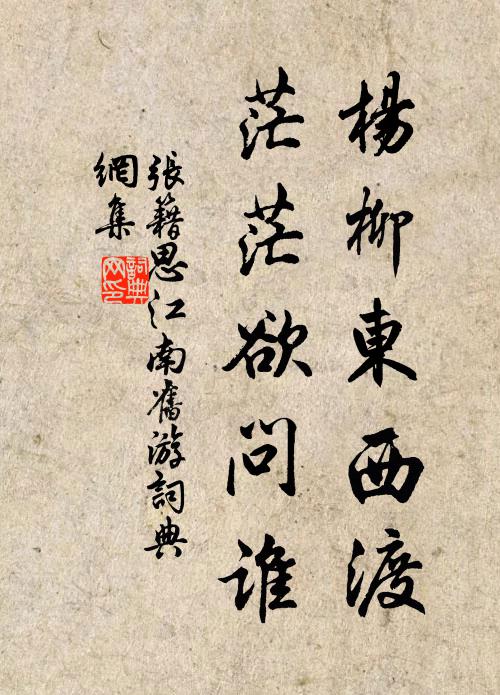 楊柳東西渡
茫茫欲問誰
張籍思江南舊游詞典
網集
詞典
网印